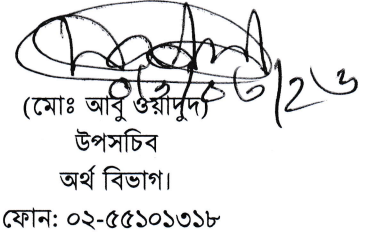 (মোঃ আবু ওয়াদুদ)
উপসচিব
অর্থ বিভাগ।
ফোন: ০২-৫৫১০১৩১৮